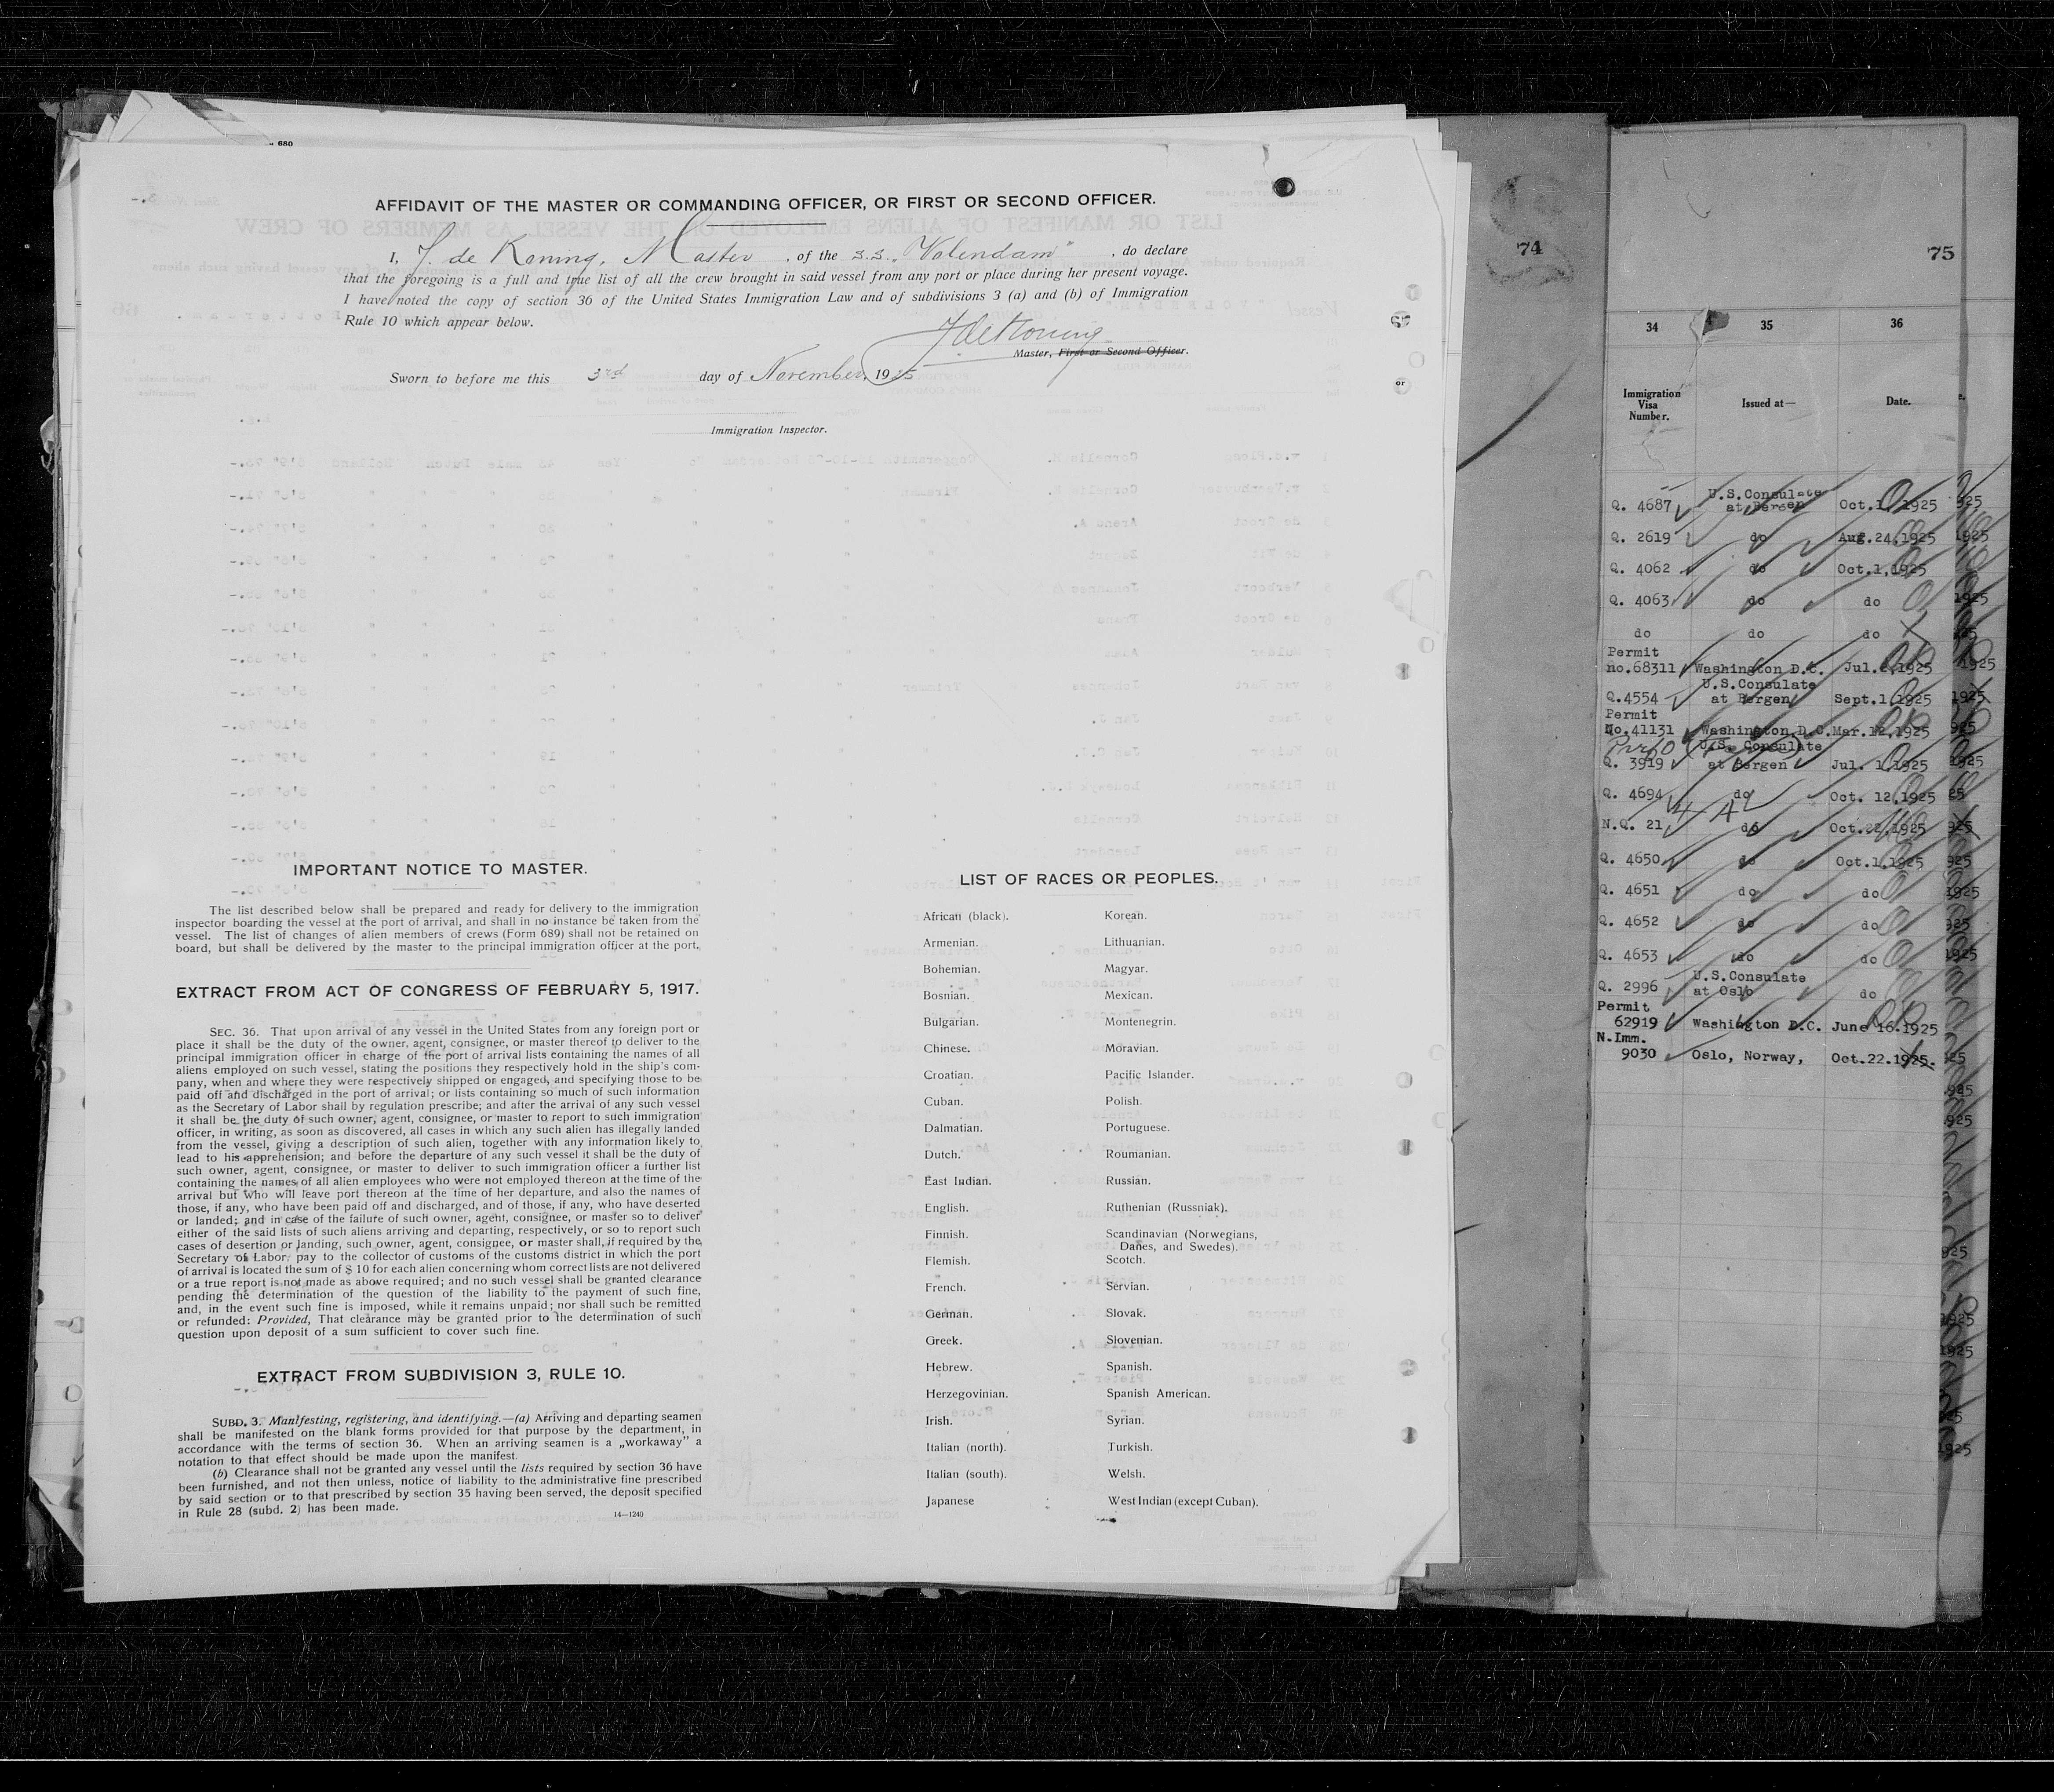 680
AFFIDAVIT OF THE MASTER OR COMMANDING OFFICER, OR FIRST OR SECOND OFFICER.
I, J. de Koning, Master, of the s.s. "Volendam", do declare
that the foregoing is a full and true list of all the crew brought in said vessel from any port or place during her present voyage.
I have noted the copy of section 36 of the United States Immigration Law and of subdivisions 3 (a) and (b) of Immigration
Rule 10 which appear below.
J de Koning
Master, First or Second Officer.
Sworn to before me this 3rd day of November, 1925
Immigration Inspector.
IMPORTANT NOTICE TO MASTER.
The list described below shall be prepared and ready for delivery to the immigration
inspector boarding the vessel at the port of arrival, and shall in no instance be taken from the
vessel. The list of changes of alien members of crews (Form 689) shall not be retained on
board, but shall be delivered by the master to the principal immigration officer at the port.
EXTRACT FROM ACT OF CONGRESS OF FEBRUARY 5, 1917.
SEC. 36. That upon arrival of any vessel in the United States from any foreign port or
place it shall be the duty of the owner, agent, consignee, or master thereof to deliver to the
principal immigration officer in charge of the port of arrival lists containing the names of all
aliens employed on such vessel, stating the positions they respectively hold in the ship's com-
pany, when and where they were respectively shipped or engaged, and specifying those to be
paid off and discharged in the port of arrival; or lists containing so much of such information
as the Secretary of Labor shall by regulation prescribe; and after the arrival of any such vessel
it shall be the duty of such owner, agent, consignee, or master to report to such immigration
officer, in writing, as soon as discovered, all cases in which any such alien has illegally landed
from the vessel, giving a description of such alien, together with any information likely to
lead to his apprehension; and before the departure of any such vessel it shall be the duty of
such owner, agent, consignee, or master to deliver to such immigration officer a further list
containing the names of all alien employees who were not employed thereon at the time of the
arrival but who will leave port thereon at the time of her departure, and also the names of
those, if any, who have been paid off and discharged, and of those, if any, who have deserted
or landed; and in case of the failure of such owner, agent, consignee, or master so to deliver
either of the said lists of such aliens arriving and departing, respectively, or so to report such
cases of desertion or landing, such owner, agent, consignee, or master shall, if required by the
Secretary of Labor, pay to the collector of customs of the customs district in which the port
of arrival is located the sum of $ 10 for each alien concerning whom correct lists are not delivered
or a true report is not made as above required; and no such vessel shall be granted clearance
pending the determination of the question of the liability to the payment of such fine,
and, in the event such fine is imposed, while it remains unpaid; nor shall such be remitted
or refunded: Provided, That clearance may be granted prior to the determination of such
question upon deposit of a sum sufficient to cover such fine.
EXTRACT FROM SUBDIVISION 3, RULE 10.
SUBD. 3. Manifesting, registering, and identifying.—(a) Arriving and departing seamen
shall be manifested on the blank forms provided for that purpose by the department, in
accordance with the terms of section 36. When an arriving seamen is a „workaway" a
notation to that effect should be made upon the manifest.
(b) Clearance shall not be granted any vessel until the lists required by section 36 have
been furnished, and not then unless, notice of liability to the administrative fine prescribed
by said section or to that prescribed by section 35 having been served, the deposit specified
in Rule 28 (subd. 2) has been made.
14—1240
LIST OF RACES OR PEOPLES.
African (black). Korean.
Armenian. Lithuanian.
Bohemian. Magyar.
Bosnian. Mexican.
Bulgarian. Montenegrin.
Chinese. Moravian.
Croatian. Pacific Islander.
Cuban. Polish.
Dalmatian. Portuguese.
Dutch. Roumanian.
East Indian. Russian.
English. Ruthenian (Russniak).
Finnish. Scandinavian (Norwegians,
Danes, and Swedes).
Flemish. Scotch.
French. Servian.
German. Slovak.
Greek. Slovenian.
Hebrew. Spanish.
Herzegovinian. Spanish American.
Irish. Syrian.
Italian (north). Turkish.
Italian (south). Welsh.
Japanese West Indian (except Cuban).
or
74
75
34 35 36
Immigration Visa Number. Issued at— Date.
Q. 4687 U.S.Consulate at Bergen Oct.1,1925
Q. 2619 do Aug.24,1925
Q. 4062 do Oct.1,1925
Q. 4063 do do
do do do
Permit
no.68311 Washington D.C. Jul. 1925
Q.4554 U.S.Consulate at Bergen Sept.1,1925
Permit
No.41131 Washington D.C. Mar.12,1925
Q. 3919 U.S. Consulate at Bergen Jul. 1,1925
Q. 4694 do Oct. 12,1925
N.Q. 21 do Oct.22,1925
Q. 4650 do Oct.1,1925
Q. 4651 do do
Q. 4652 do do
Q. 4653 do do
Q. 2996 U.S.Consulate at Oslo do
Permit
62919 Washington D.C. June 16.1925
N.Imm.
9030 Oslo, Norway, Oct.22.1925.